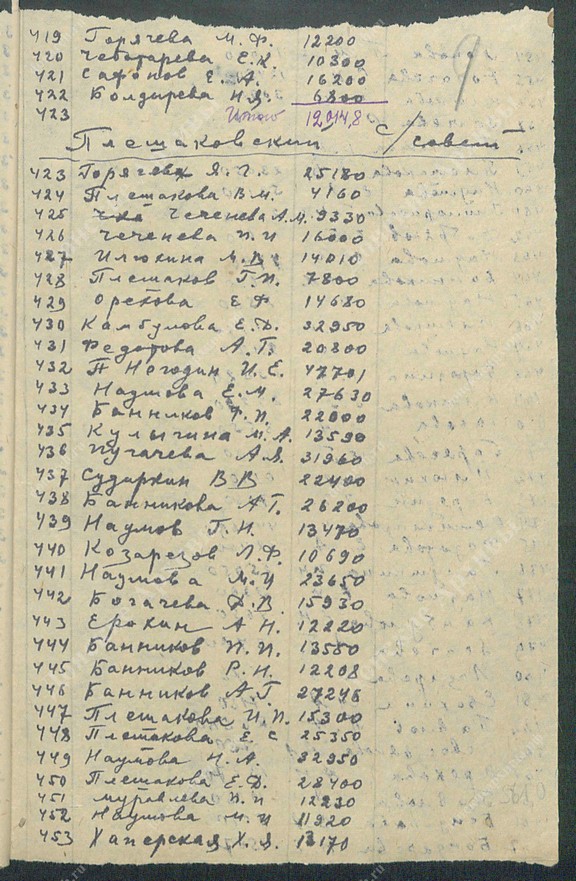 419 Горячева М.Ф. 12200
420 Чеботарева Е.К. 10300
421 Сафонов Е.А. 16200
422 Болдырева Н.Я. 6800
423 Итого
Плешаковский с/совет
423 Горячев Я.Г. 25180
424 Плешакова В.М. 4160
425 Чеченева А.М. 9330
426 Чеченева П.И 16000
427 Илюхина М.В. 14010
428 Плешаков Г.П. 7800
429 Орехова Е Ф 14680
430 Камбулова Е.Д. 32950
431 Федотова А.Г. 20800
432 Погодин И.Е. 47701
433 Наумова Е.М. 27630
434 Банников Ф.И. 22000
435 Кулыгина М.А. 13590
436 Пугачева А.Я. 31960
437 Сударкин В В 22400
438 Банникова А Г. 26200
439 Наумов Г.Н. 13470
440 Козарезов Л.Ф. 10690
441 Наумова М.И 23650
442 Богачева Ф.В. 15930
443 Ерохин А Н. 12220
444 Банников П.П. 13550
445 Банников Р.Н. 12208
446 Банников А.Г. 27248
447 Плешакова И.П. 15300
448 Плешакова Е. С 25350
449 Наумова Н.А. 32950
450 Плешакова Е.Д. 28400
451 Муравлева 12230
452 Наумова 11920
453 Хаперская Х.Я. 13170